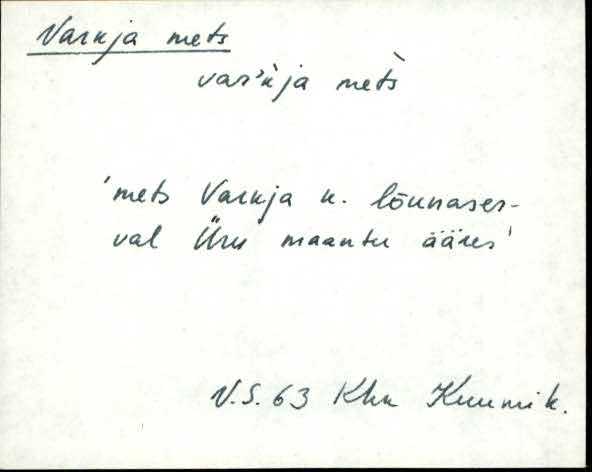 Varkja mets
var'k̀ja met̀s
'mets Varkja k. lõunaser-
val Üru maantee ääres'
V.S. 63 Khk Kuumik.